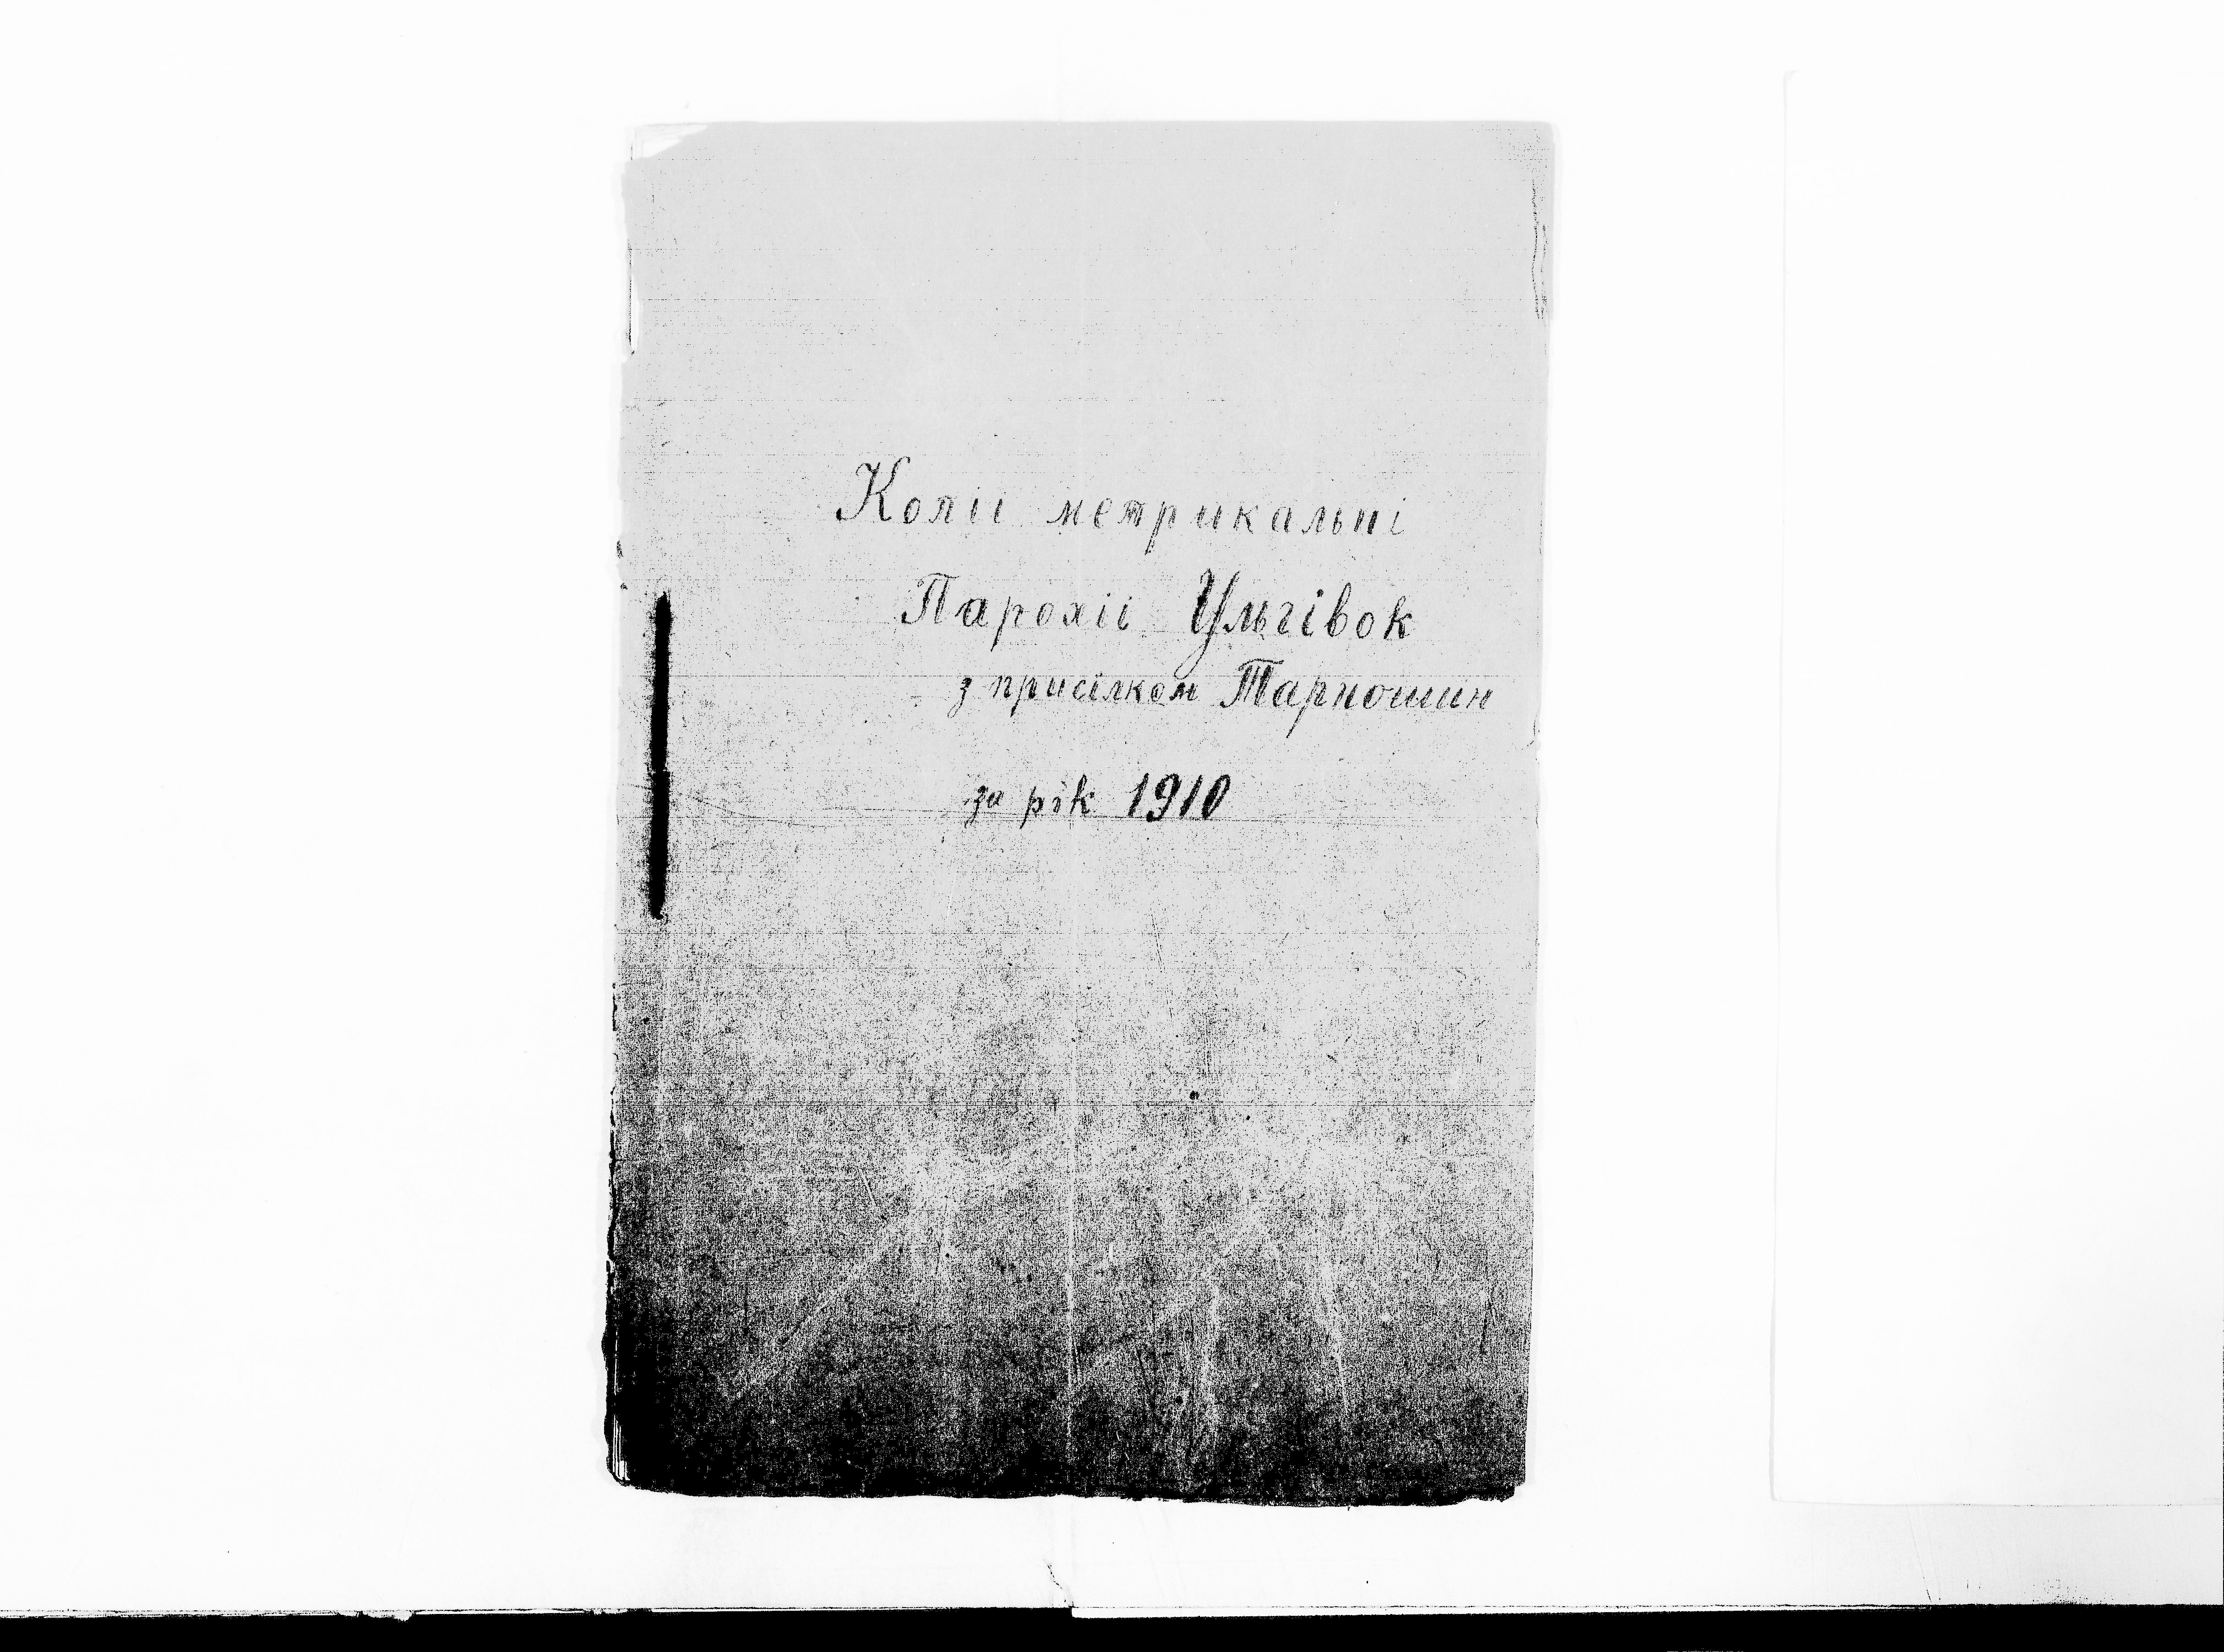 Копіі метрикальні
Парохіі Ульгівок
з присілком Тарношин
за рік 1910